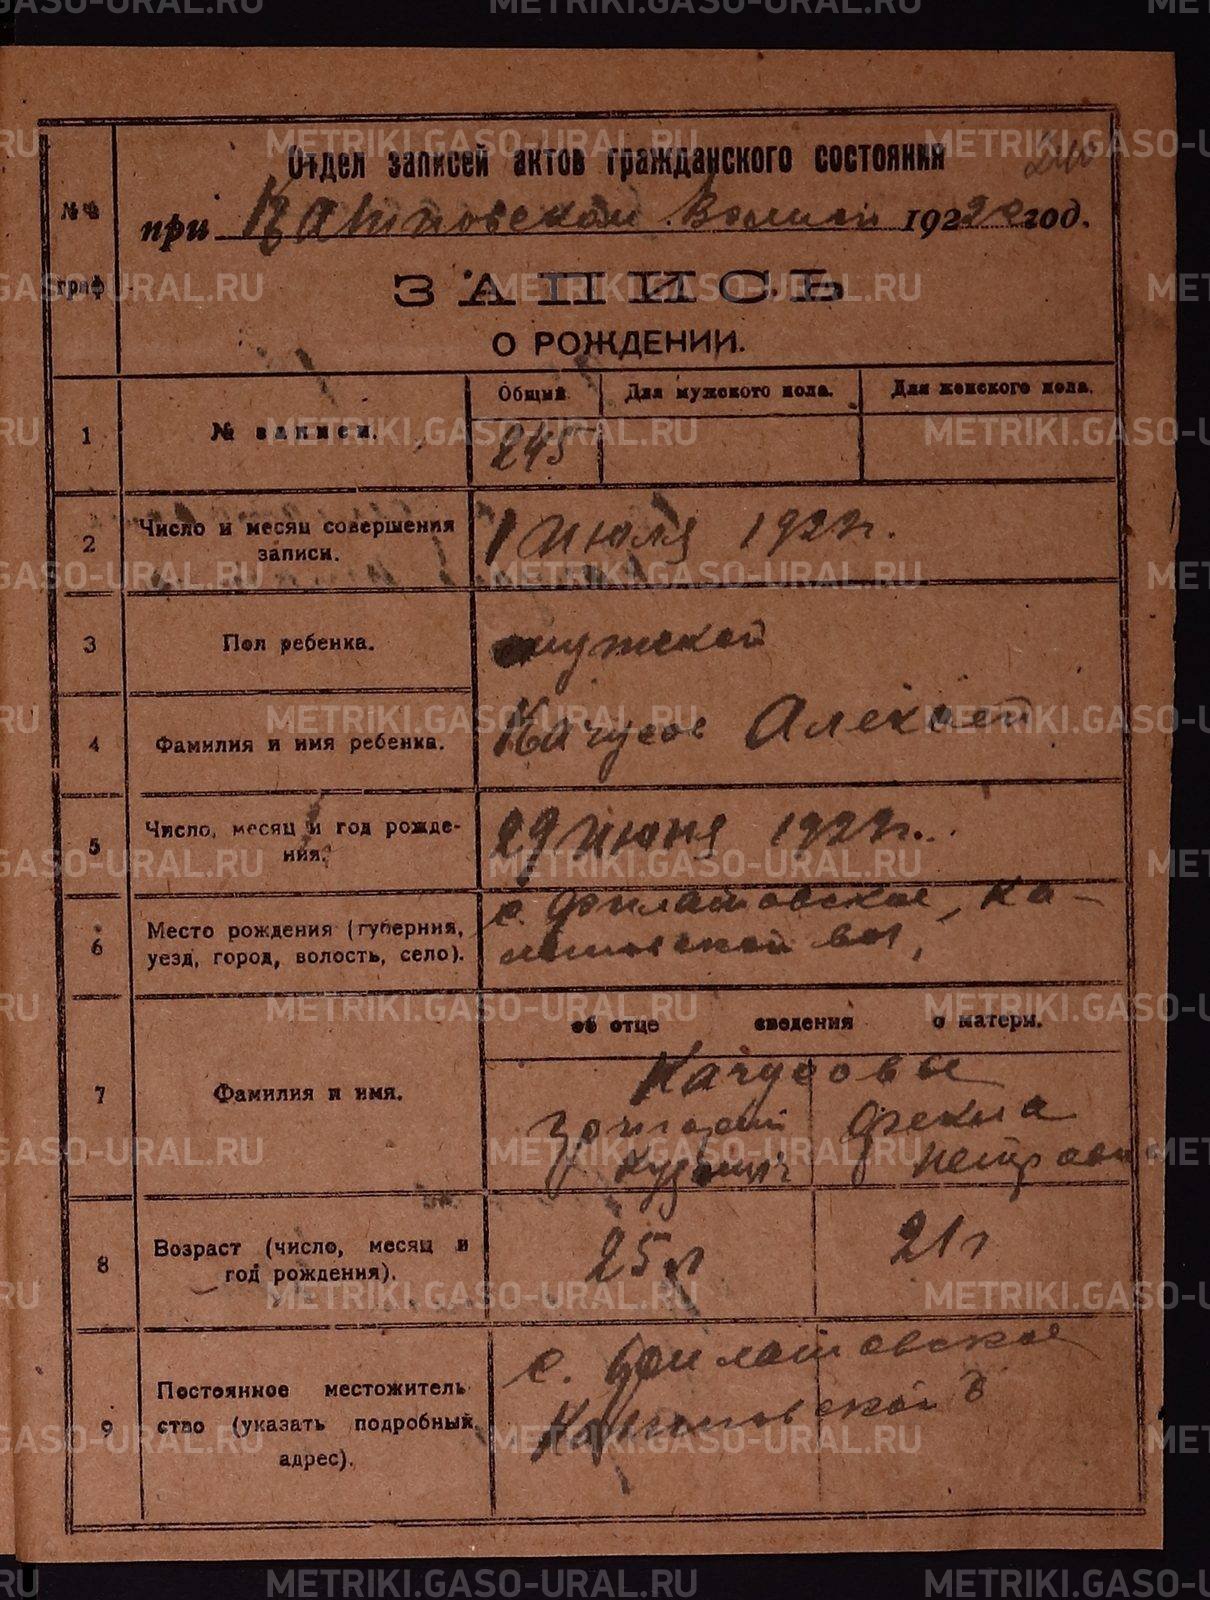 METRIKI.GASO-URAL.RU
Отдел записей актов гражданского состояния
240
№№ граф
при Волисп 1922 год.
ЗАПИСЬ
О РОЖДЕНИИ.
Общий Для мужского пола. Для женского пола.
1 № записи. 245
2 Число и месяц совершения
записи.
1 июля 1922 г.
3 Пол ребенка. мужской
4 Фамилия и имя ребенка. Качусов Алексей
5 Число, месяц и год рожде-
ния.
29 июня 1922 г.
6 Место рождения (губерния,
уезд, город, волость, село).
с. Филатовское, Ка-
вол,
об отце сведения о матери.
7 Фамилия и имя.
Качусовы
Григорий Фекла
Кузьмич Петровна
8 Возраст (число, месяц и
год рождения).
25 л 21 г
9 Постоянное местожитель
ство (указать подробный
адрес).
с. Филатовское
В